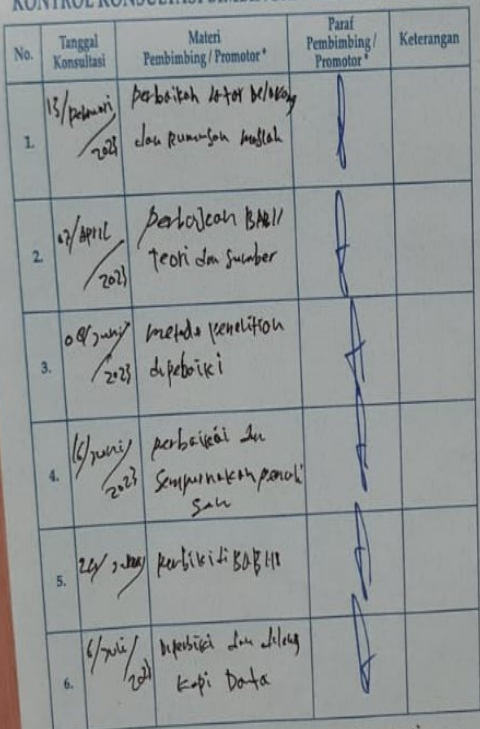 KONTROL KONSULTASI
No.
Tanggal
Konsultasi
Materi
Pembimbing / Promotor *
Paraf
Pembimbing /
Promotor *
Keterangan
1.
15/Februari
/2023
perbaikan latar belakang
dan Rumusan maslah
2.
/APRIL
/2023
BAB II
Teori dan Sumber
3.
/Juni/
/2023
metode penelitian
dipebaiki
4.
16/Juni/
2023
perbaikai
Sempurnakan penuli
San
5.
BAB III
6.
6/Juli/
dan
kapi Data